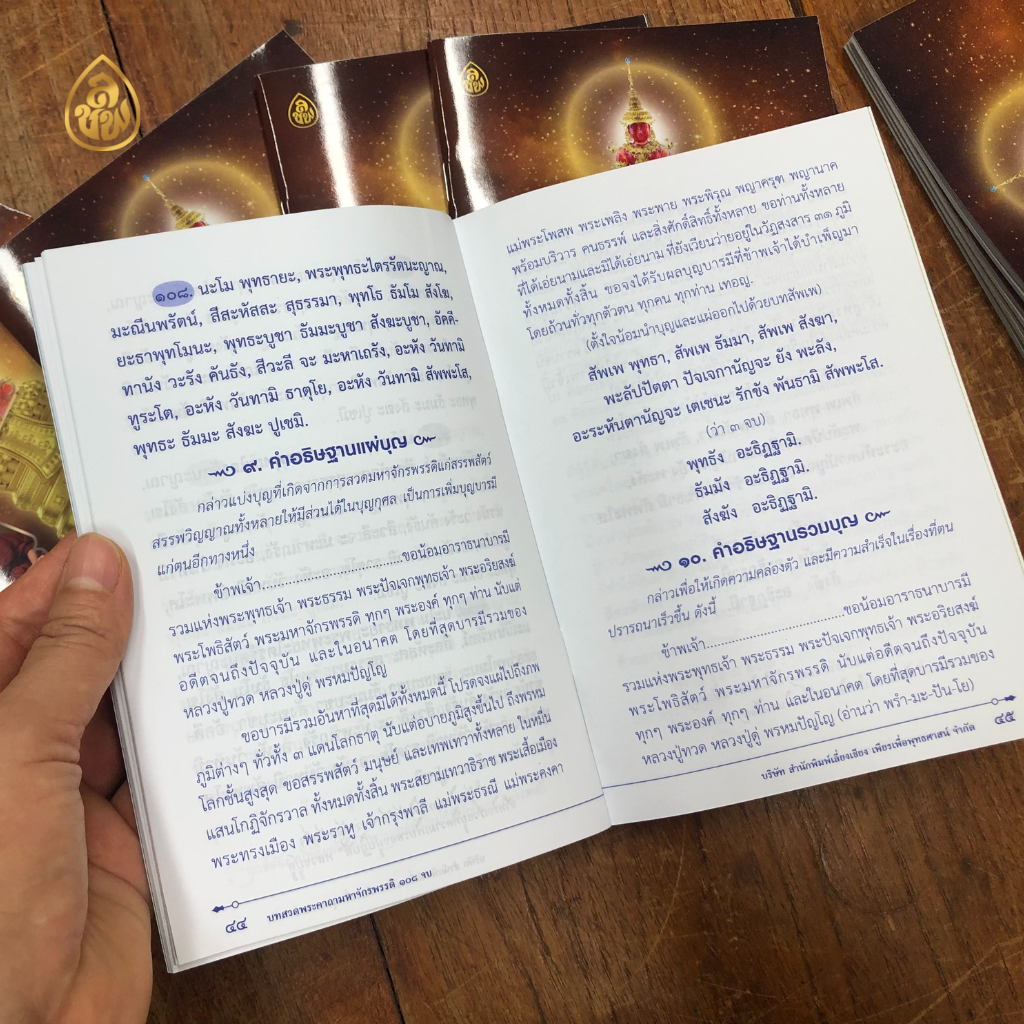 ชลิพ
๑๐๘. นะโม พุทธายะ, พระพุทธะไตรรัตนะญาณ,
มะณีนพรัตน์, สีสะหัสสะ สุธรรมา, พุทโธ ธัมโม สังโฆ,
ยะธาพุทโมนะ, พุทธะบูชา ธัมมะบูชา สังฆะบูชา, อัคคี-
ทานัง วะรัง คันธัง, สีวะลี จะ มะหาเถรัง, อะหัง วันทามิ
ทูระโต, อะหัง วันทามิ ธาตุโย, อะหัง วันทามิ สัพพะโส,
พุทธะ ธัมมะ สังฆะ ปูเชมิ.
๙. คำอธิษฐานแผ่บุญ
กล่าวแบ่งบุญที่เกิดจากการสวดมหาจักรพรรดิแก่สรรพสัตว์
สรรพวิญญาณทั้งหลายให้มีส่วนได้ในบุญกุศล เป็นการเพิ่มบุญบารมี
แก่ตนอีกทางหนึ่ง
ข้าพเจ้า........................................ขอน้อมอาราธนาบารมี
รวมแห่งพระพุทธเจ้า พระธรรม พระปัจเจกพุทธเจ้า พระอริยสงฆ์
พระโพธิสัตว์ พระมหาจักรพรรดิ ทุกๆ พระองค์ ทุกๆ ท่าน นับแต่
อดีตจนถึงปัจจุบัน และในอนาคต โดยที่สุดบารมีรวมของ
หลวงปู่ทวด หลวงปู่ดู่ พรหมปัญโญ
ขอบารมีรวมอันหาที่สุดมิได้ทั้งหมดนี้ โปรดจงแผ่ไปถึงภพ
ภูมิต่างๆ ทั่วทั้ง ๓ แดนโลกธาตุ นับแต่อบายภูมิสูงขึ้นไป ถึงพรหม
โลกชั้นสูงสุด ขอสรรพสัตว์ มนุษย์ และเทพเทวาทั้งหลาย ในหมื่น
แสนโกฏิจักรวาล ทั้งหมดทั้งสิ้น พระสยามเทวาธิราช พระเสื้อเมือง
พระทรงเมือง พระราหู เจ้ากรุงพาลี แม่พระธรณี แม่พระคงคา
๔๔ บทสวดพระคาถามหาจักรพรรดิ ๑๐๘ จบ
แม่พระโพสพ พระเพลิง พระพาย พระพิรุณ พญาครุฑ พญานาค
พร้อมบริวาร คนธรรพ์ และสิ่งศักดิ์สิทธิ์ทั้งหลาย ขอท่านทั้งหลาย
ที่ได้เอ่ยนามและมิได้เอ่ยนาม ที่ยังเวียนว่ายอยู่ในวัฏสงสาร ๓๑ ภูมิ
ทั้งหมดทั้งสิ้น ขอจงได้รับผลบุญบารมีที่ข้าพเจ้าได้บำเพ็ญมา
โดยถ้วนทั่วทุกตัวตน ทุกคน ทุกท่าน เทอญ.
(ตั้งใจน้อมนำบุญและแผ่ออกไปด้วยบทสัพเพ)
สัพเพ พุทธา, สัพเพ ธัมมา, สัพเพ สังฆา,
พะลัปปัตตา ปัจเจกานัญจะ ยัง พะลัง,
อะระหันตานัญจะ เตเชนะ รักขัง พันธามิ สัพพะโส.
(ว่า ๓ จบ)
พุทธัง อะธิฏฐามิ.
ธัมมัง อะธิฏฐามิ.
สังฆัง อะธิฏฐามิ.
๑๐. คำอธิษฐานรวมบุญ
กล่าวเพื่อให้เกิดความคล่องตัว และมีความสำเร็จในเรื่องที่ตน
ปรารถนาเร็วขึ้น ดังนี้
ข้าพเจ้า........................................ขอน้อมอาราธนาบารมี
รวมแห่งพระพุทธเจ้า พระธรรม พระปัจเจกพุทธเจ้า พระอริยสงฆ์
พระโพธิสัตว์ พระมหาจักรพรรดิ นับแต่อดีตจนถึงปัจจุบัน
ทุกๆ พระองค์ ทุกๆ ท่าน และในอนาคต โดยที่สุดบารมีรวมของ
หลวงปู่ทวด หลวงปู่ดู่ พรหมปัญโญ (อ่านว่า พรำ-มะ-ปัน-โย)
บริษัท สำนักพิมพ์เลี่ยงเชียง เพียรเพื่อพุทธศาสน์ จำกัด ๔๕